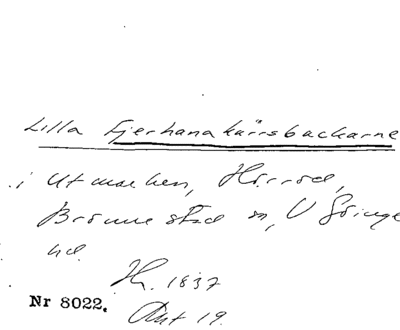 Lilla Fjerhanakärrsbackarne
i Utmarken, Hörröd,
Brönnestad sn, V Göinge
hd.
H. 1837
Nr 8022. Akt 19.